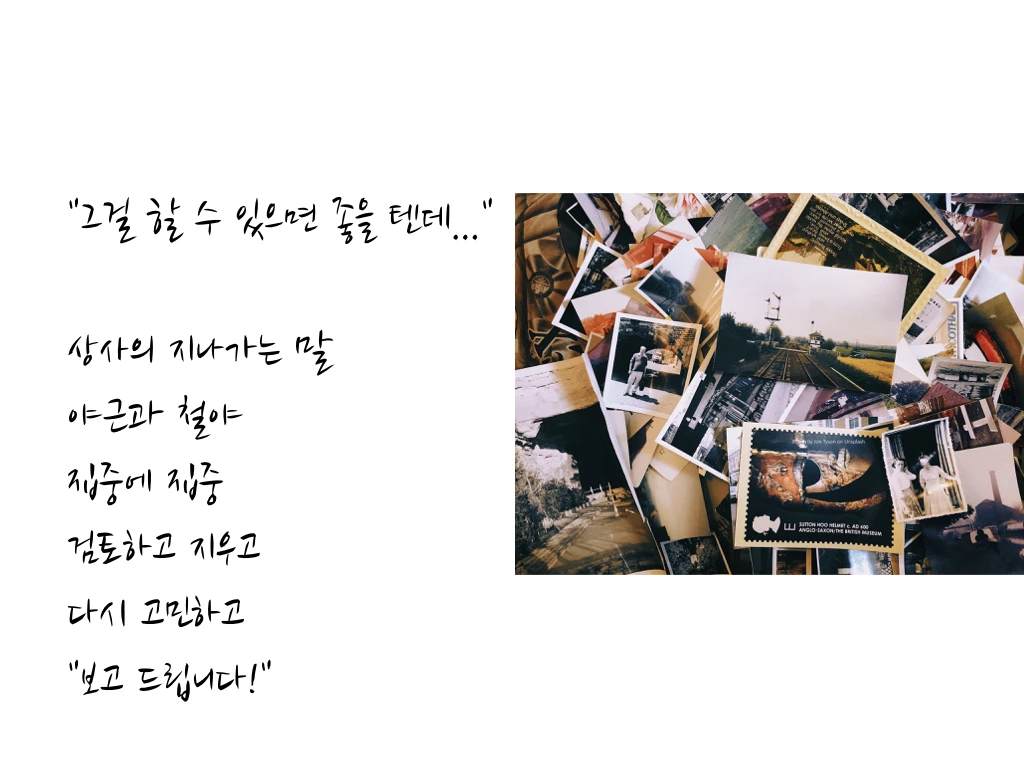 "그걸 할 수 있으면 좋을 텐데..."
상사의 지나가는 말
야근과 철야
집중에 집중
검토하고 지우고
다시 고민하고
"보고 드립니다!"
by Joe Tyson on Unsplash
E
SUTTON HOO HELMET c. AD 600
ANGLO-SAXON/THE BRITISH MUSEUM